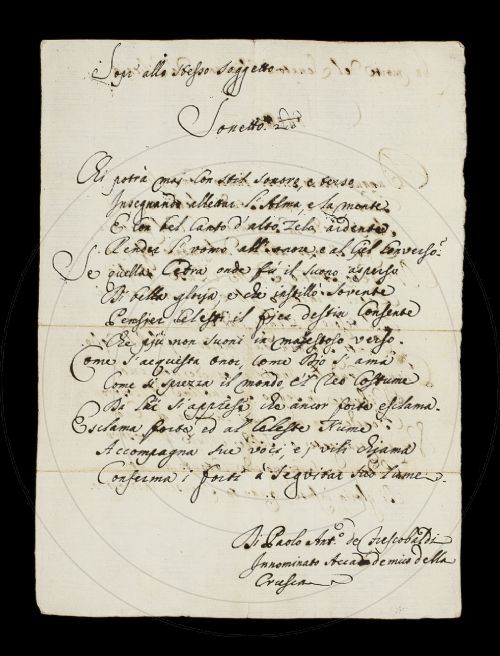 Sopr' allo stesso soggetto
Sonetto. 2º
Chi potrà mai con stil sonoro, e terso
Insegnando allettar l'Alma, e la mente
E con bel Canto d'alto Zelo ardente
Render l'uomo all'onore, e al Ciel converso.
Se quella Cetra onde fù il suono asperso
Di bella gloria, e che instillò sovente
Pensier Celesti il fier destin Consente
Che più non suoni in maestoso verso.
Come s'acquista onor Come Dio s'ama
Come si sprezza il mondo, e'l reo Costume
Da lui s'apprese che ancor forte esclama.
Esclama forte ed al Celeste Nume
Accompagna sue voci, e i vili chiama
Conferma i forti à seguitar suo lume
Di Paolo Antº. de Frescobaldi
Innominato Accademico della
Crusca